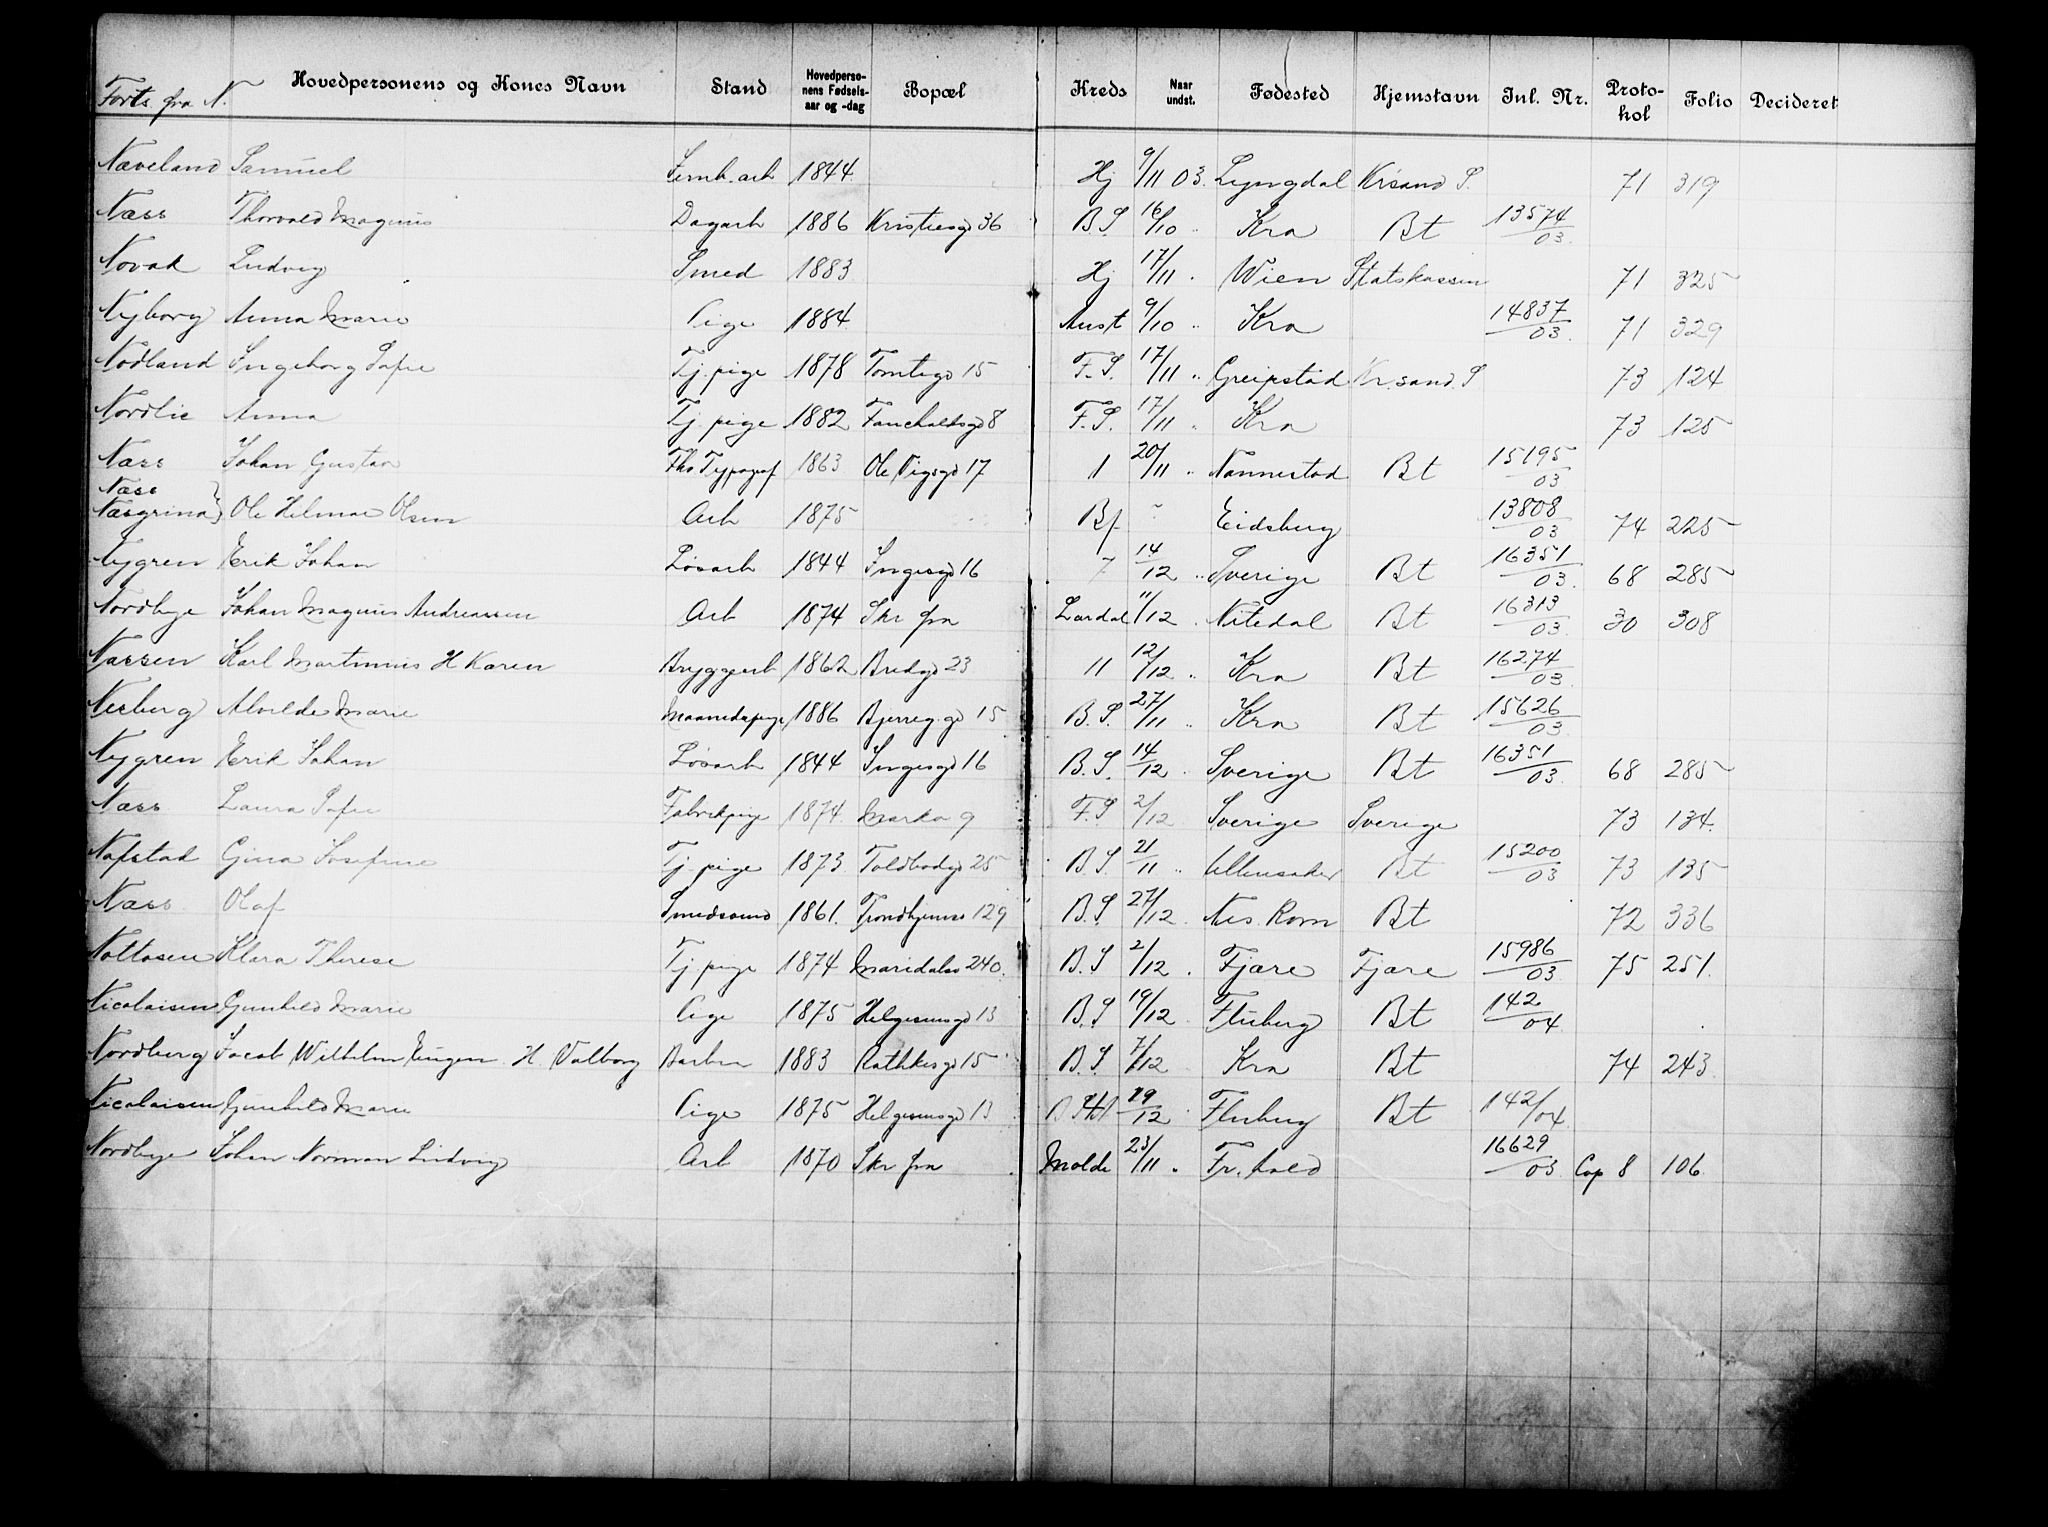 Forts. fra N. Hovedpersonens og Kones Navn Stand Hovedpersonens Fødselsaar og -dag Bopæl Kreds Naar undst. Fødested Hjemstavn Inl. Nr. Protokol Folio Decideret
Næveland Samuel Jernb.arb 1844. Hj 9/11 03. Lyngdal Kr.sand S. 71 319
Næss Thorvald Magnus Dagarb 1886 Kristiesgd 36 B.S. 16/10 " Kra Bt 13574/03.
Novak Ludvig Smed 1883 Hj 17/11 . Wien Statskassen 71 325
Nyborg Anna Marie Pige 1884 Aust 9/10 " Kra 14837/03. 71 329
Nodland Ingeborg Sofie Tj. pige 1878 Tomtegd 15 F.S. 17/11 " Greipstad Kr.sand. S 73 124
Nordlie Anna Tj. pige 1882 Fauchaldsgd 8 F.S. 17/11 " Kra 73 125
Næss Johan Gustav Fhv Typograf 1863 Ole Vigsgd 17 1 20/11 " Nannestad Bt 15195/03
Næss
Næsgrina} Ole Hilmar Olsen Arb 1875 Bf " Eidsberg 13808/03 74 225
Nygren Erik Johan Løsarb 1844 Ingesgd 16 7 14/12 " Sverige Bt 16351/03. 68 285
Nordbye Johan Magnus Andreassen Arb 1874 Skr fra Lardal 11/12 Nitedal Bt 16313/03. 30 308
Nassen Karl Martinius H Karen Bryggearb 1862 Bredgd 23 11 12/12 " Kra Bt 16274/03.
Nesberg Alvilde Marie Maanedspige 1886 Bjerregd 15 B.S. 27/11 " Kra Bt 15626/03.
Nygren Erik Johan Løsarb 1844 Ingesgd 16 B.S. 14/12 . Sverige Bt 16351/03. 68 285
Næss Laura Sofie Fabrikpige 1874. Markv 9 F.S 2/12 Sverige Sverige 73 134.
Nafstad Gina Josefine Tj. pige 1873 Toldbodgd 25 B.S 21/11 " Ullensaker Bt 15200/03 73 135
Næss Olaf Smedsvend 1861. Trondhjemsv 129 B.S 27/12 . Nes. Rom Bt 72 336
Noltosen Klara Therese Tj pige 1874 Maridalsv 240. B.S 2/12 . Fjære Fjære 15986/03 75 251.
Nicolaisen Gunhild Marie Pige 1875 Helgesensgd 13 B.S 19/12 . Fluberg Bt 142/04
Nordberg Jacob Wilhelm Eugen. H. Valborg Barber 1883 Rathkesgd 15 B.S 7/12 Kra Bt 74 243.
Nicolaisen Gunhild Marie Pige 1875 Helgesensgd 13 19/12 Fluberg Bt 142/04.
Nordbye Johan Norman Ludvig Arb 1870 Skr fra Molde 23/11 " Fr.hald 16629/03 Cop 8 106